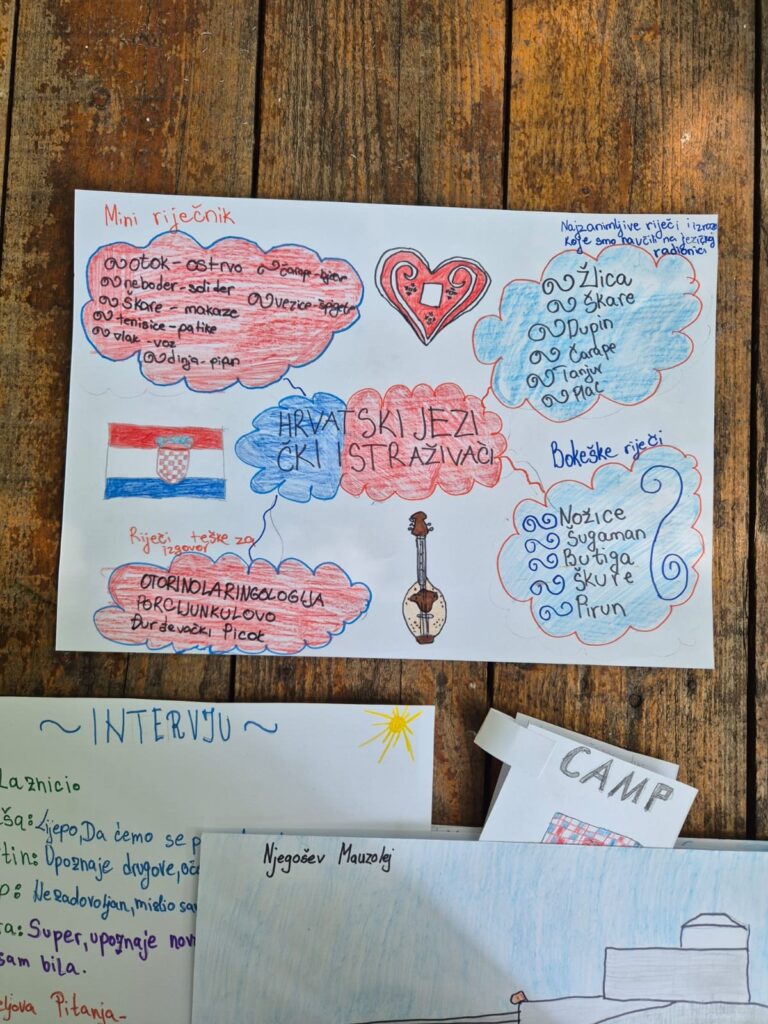 Mini riječnik
otok - ostrvo
neboder - solider
škare - makaze
tenisice - patike
vlak - voz
dinja - pipun
čarape - bječve
vezice - špigete
Najzanimljive riječi i izrazi
koje smo naučili na jezičkoj
radionici
Žlica
Škare
Dupin
Čarape
Tanjur
Plač
HRVATSKI JEZI
ČKI ISTRAŽIVAČI
Bokeške riječi
Nožice
Šugaman
Butiga
Škure
Pirun
Riječi teške za
izgovor
OTORINOLARINGOLOGIJA
PORCIJUNKULOVO
Đurđevački Picok
~INTERVJU~
Laznicio
Lijepo, Da ćemo se
Upoznaje drugove,
Nezadovoljan, mislio sam
Super, upoznaje
sam bila.
Pitanja-
CAMP
Njegošev Mauzolej